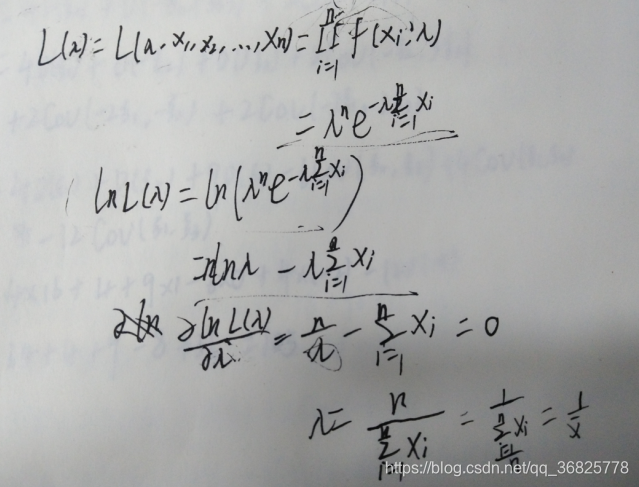 L(λ) = L(λ, x₁, x₂, ..., xₙ) = ∏_{i=1}^{n} f(xᵢ; λ)
= λⁿ e^{-λ∑_{i=1}^{n} xᵢ}
ln L(λ) = ln(λⁿ e^{-λ∑_{i=1}^{n} xᵢ})
= n ln λ - λ ∑_{i=1}^{n} xᵢ
∂ ln L(λ) / ∂λ = n/λ - ∑_{i=1}^{n} xᵢ = 0
λ = n / ∑_{i=1}^{n} xᵢ = 1 / (∑_{i=1}^{n} xᵢ / n) = 1/x̄
https://blog.csdn.net/qq_36825778